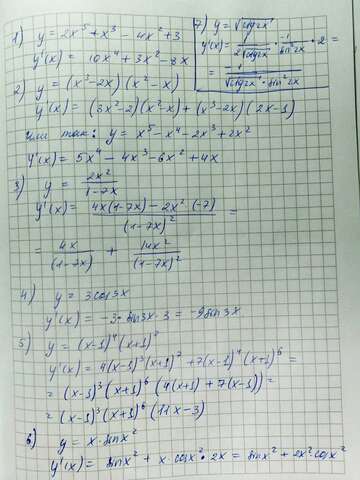 1) y = 2x⁵ + x³ - 4x² + 3
y'(x) = 10x⁴ + 3x² - 8x
2) y = (x³ - 2x)(x² - x)
y'(x) = (3x² - 2)(x² - x) + (x³ - 2x)(2x - 1)
или так: y = x⁵ - x⁴ - 2x³ + 2x²
y'(x) = 5x⁴ - 4x³ - 6x² + 4x
3) y = 2x² / (1 - 7x)
y'(x) = (4x(1 - 7x) - 2x² · (-7)) / (1 - 7x)² =
= 4x / (1 - 7x) + 14x² / (1 - 7x)²
4) y = 3cos3x
y'(x) = -3 · sin3x · 3 = -9sin3x
5) y = (x - 1)⁴(x + 1)⁷
y'(x) = 4(x - 1)³(x + 1)⁷ + 7(x - 1)⁴(x + 1)⁶ =
= (x - 1)³(x + 1)⁶(4(x + 1) + 7(x - 1)) =
= (x - 1)³(x + 1)⁶(11x - 3)
6) y = x · sinx²
y'(x) = sinx² + x · cosx² · 2x = sinx² + 2x² cosx²
7) y = √ctg2x
y'(x) = 1 / (2√ctg2x) · -1 / sin²2x · 2 =
= -1 / (√ctg2x · sin²2x)